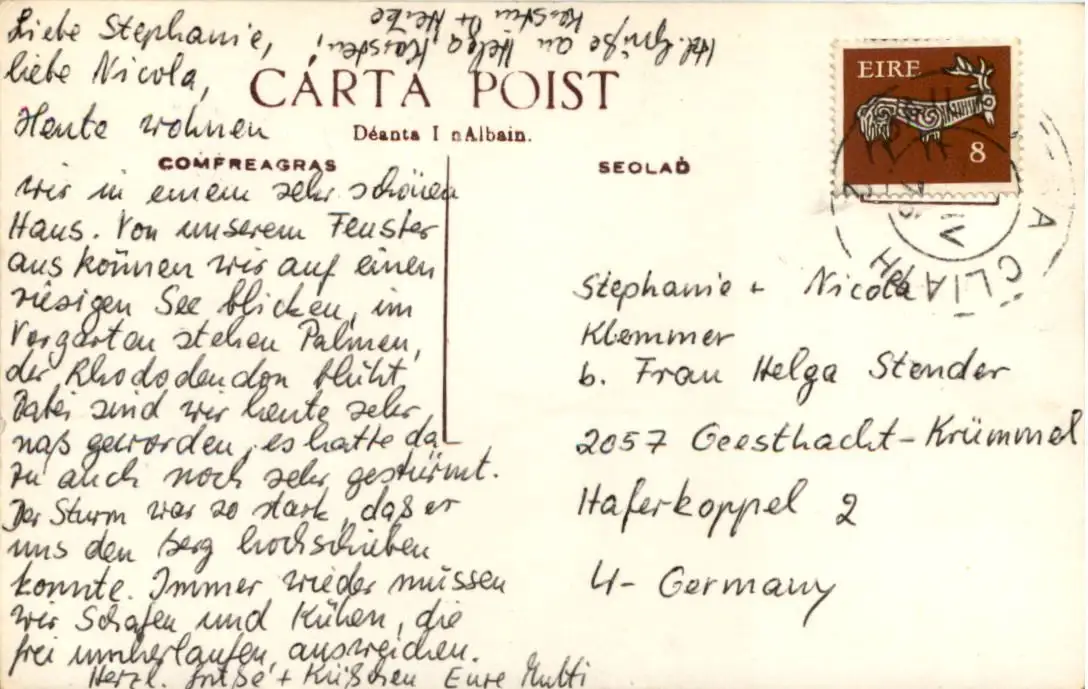 Liebe Stephanie,
liebe Nicola,
Heute wohnen
wir in einem sehr schönen
Haus. Von unserem Fenster
aus können wir auf einen
riesigen See blicken, im
Vorgarten stehen Palmen,
der Rhododendon blüht.
Dabei sind wir heute sehr
naß geworden, es hatte da
zu auch noch sehr gestürmt.
Der Sturm war so stark, daß er
uns den Berg hochschieben
konnte. Immer wieder müssen
wir Schafen und Kühen, die
frei umherlaufen, ausweichen.
Herzl. Grüße + Küßchen Eure Mutti
Hzl. Grüße an Helga, Karsten,
Kerstin + Heike
CÁRTA POIST
Déanta I nAlbain.
COMFREAGRAS
SEOLAḊ
EIRE
8
ÁTHA CLIATH
IV
Stephanie + Nicola
Klemmer
b. Frau Helga Stender
2057 Geesthacht-Krümmel
Haferkoppel 2
4- Germany